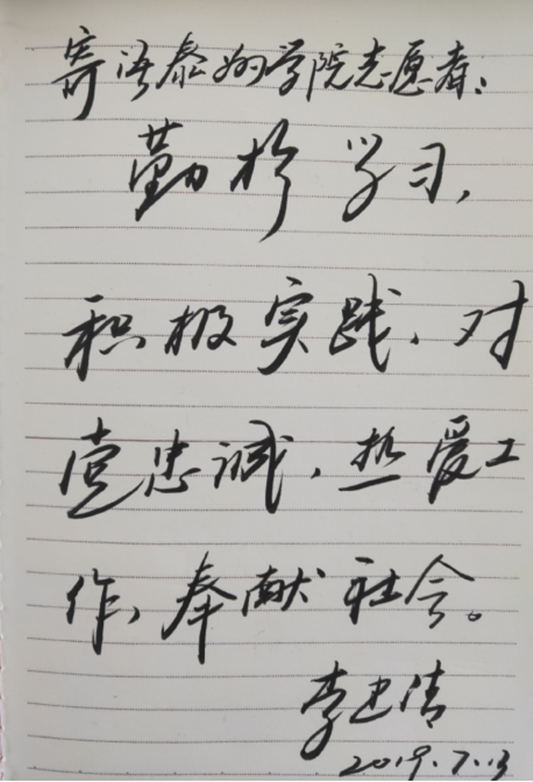 寄语泰州学院志愿者:
勤于学习,
积极实践，对
党忠诚，热爱工
作，奉献社会。
李建清
2019.7.13